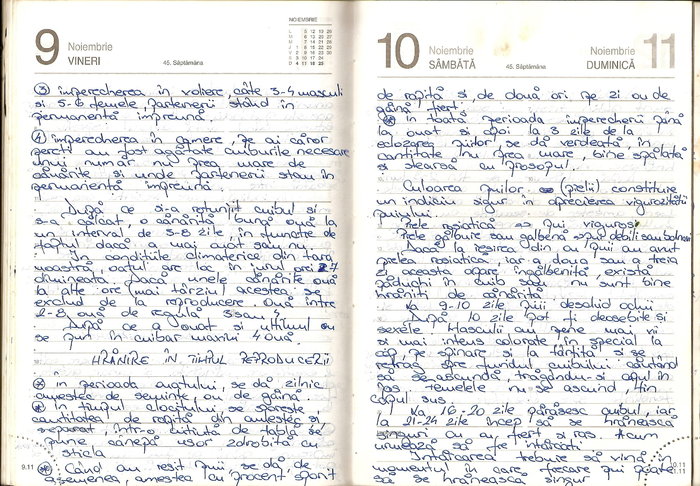 9 Noiembrie
VINERI
45. Săptămâna
NOIEMBRIE
L 5 12 19 26
M 6 13 20 27
M 7 14 21 28
J 1 8 15 22 29
V 2 9 16 23 30
S 3 10 17 24
D 4 11 18 25
③ împerecherea în voliere, câte 3-4 masculi
si 5-6 femele, partenerii stând în
permanentă împreună.
④ împerecherea în camere, pe ai căror
pereti au fost agățate cuiburile necesare
unui număr nu prea mare de
cănărite si unde partenerii stau în
permanentă împreună.
După ce si-a rotunjit cuibul si
s-a călcat, o cănărită bună ouă la
un interval de 5-8 zile, în functie de
faptul dacă a mai ouat sau nu.
În conditiile climaterice din tara
noastră, ouatul are loc în jurul orei 7
dimineata. Dacă unele cănărite ouă
la alte ore, mai târziu, acestea se
exclud de la reproducere. Ouă între
2-8 ouă de regulă 3 sau 4.
După ce a ouat si ultimul ou
se pun în cuibar maxim 4 ouă.
HRĂNIRE ÎN TIMPUL REPRODUCERII
în perioada ouatului, se dă zilnic
amestec de seminte, ou de găină.
În timpul clocitului se sporeste
cantitatea de rapită din amestec si
separat, într-o cutiută de tablă, se
pune cânepă usor zdrobită cu
sticla
Când au iesit puii se dă, de
asemenea, amestec cu procent sporit
9.11
10 Noiembrie
SÂMBĂTĂ
45. Săptămâna
Noiembrie 11
DUMINICĂ
de rapită si, de două ori pe zi ou de
găină fiert.
în toată perioada împerecherii până
la ouat si apoi la 3 zile de la
eclozarea puilor, se dă verdeată, în
cantitate nu prea mare, bine spălată
si stearsă cu prosopul.
Culoarea puilor (pielii) constituie
un indiciu sigur în aprecierea vigurozitătii
puiului.
Piele rosiatică => pui vigurosi
Piele gălbuie sau galbenă => pui debili sau bolnavi
Dacă la iesirea din ou puii au avut
pielea rosiatică, iar a doua sau a treia
zi aceasta apare îngălbenită, există
păduchi în cuib sau nu sunt bine
hrăniti de cănărită.
La 9-10 zile puii deschid ochii
După 10 zile pot fi deosebite si
sexele. Masculii au pene mai vii
si mai intens colorate, în special la
cap, pe spinare si la târtită si se
retrag spre fundul cuibului căutând
să se ascundă, trăgându-si capul în
jos. Femelele nu se ascund, tin
capul sus.
La 16-20 zile părăsesc cuibul, iar
la 21-24 zile încep să se hrănească
singuri cu ou fiert si ras. Acum
urmează să fie întărcati
Întărcarea trebuie să vină în
momentul în care fiecare pui poate
să se hrănească singur
10.11
11.11